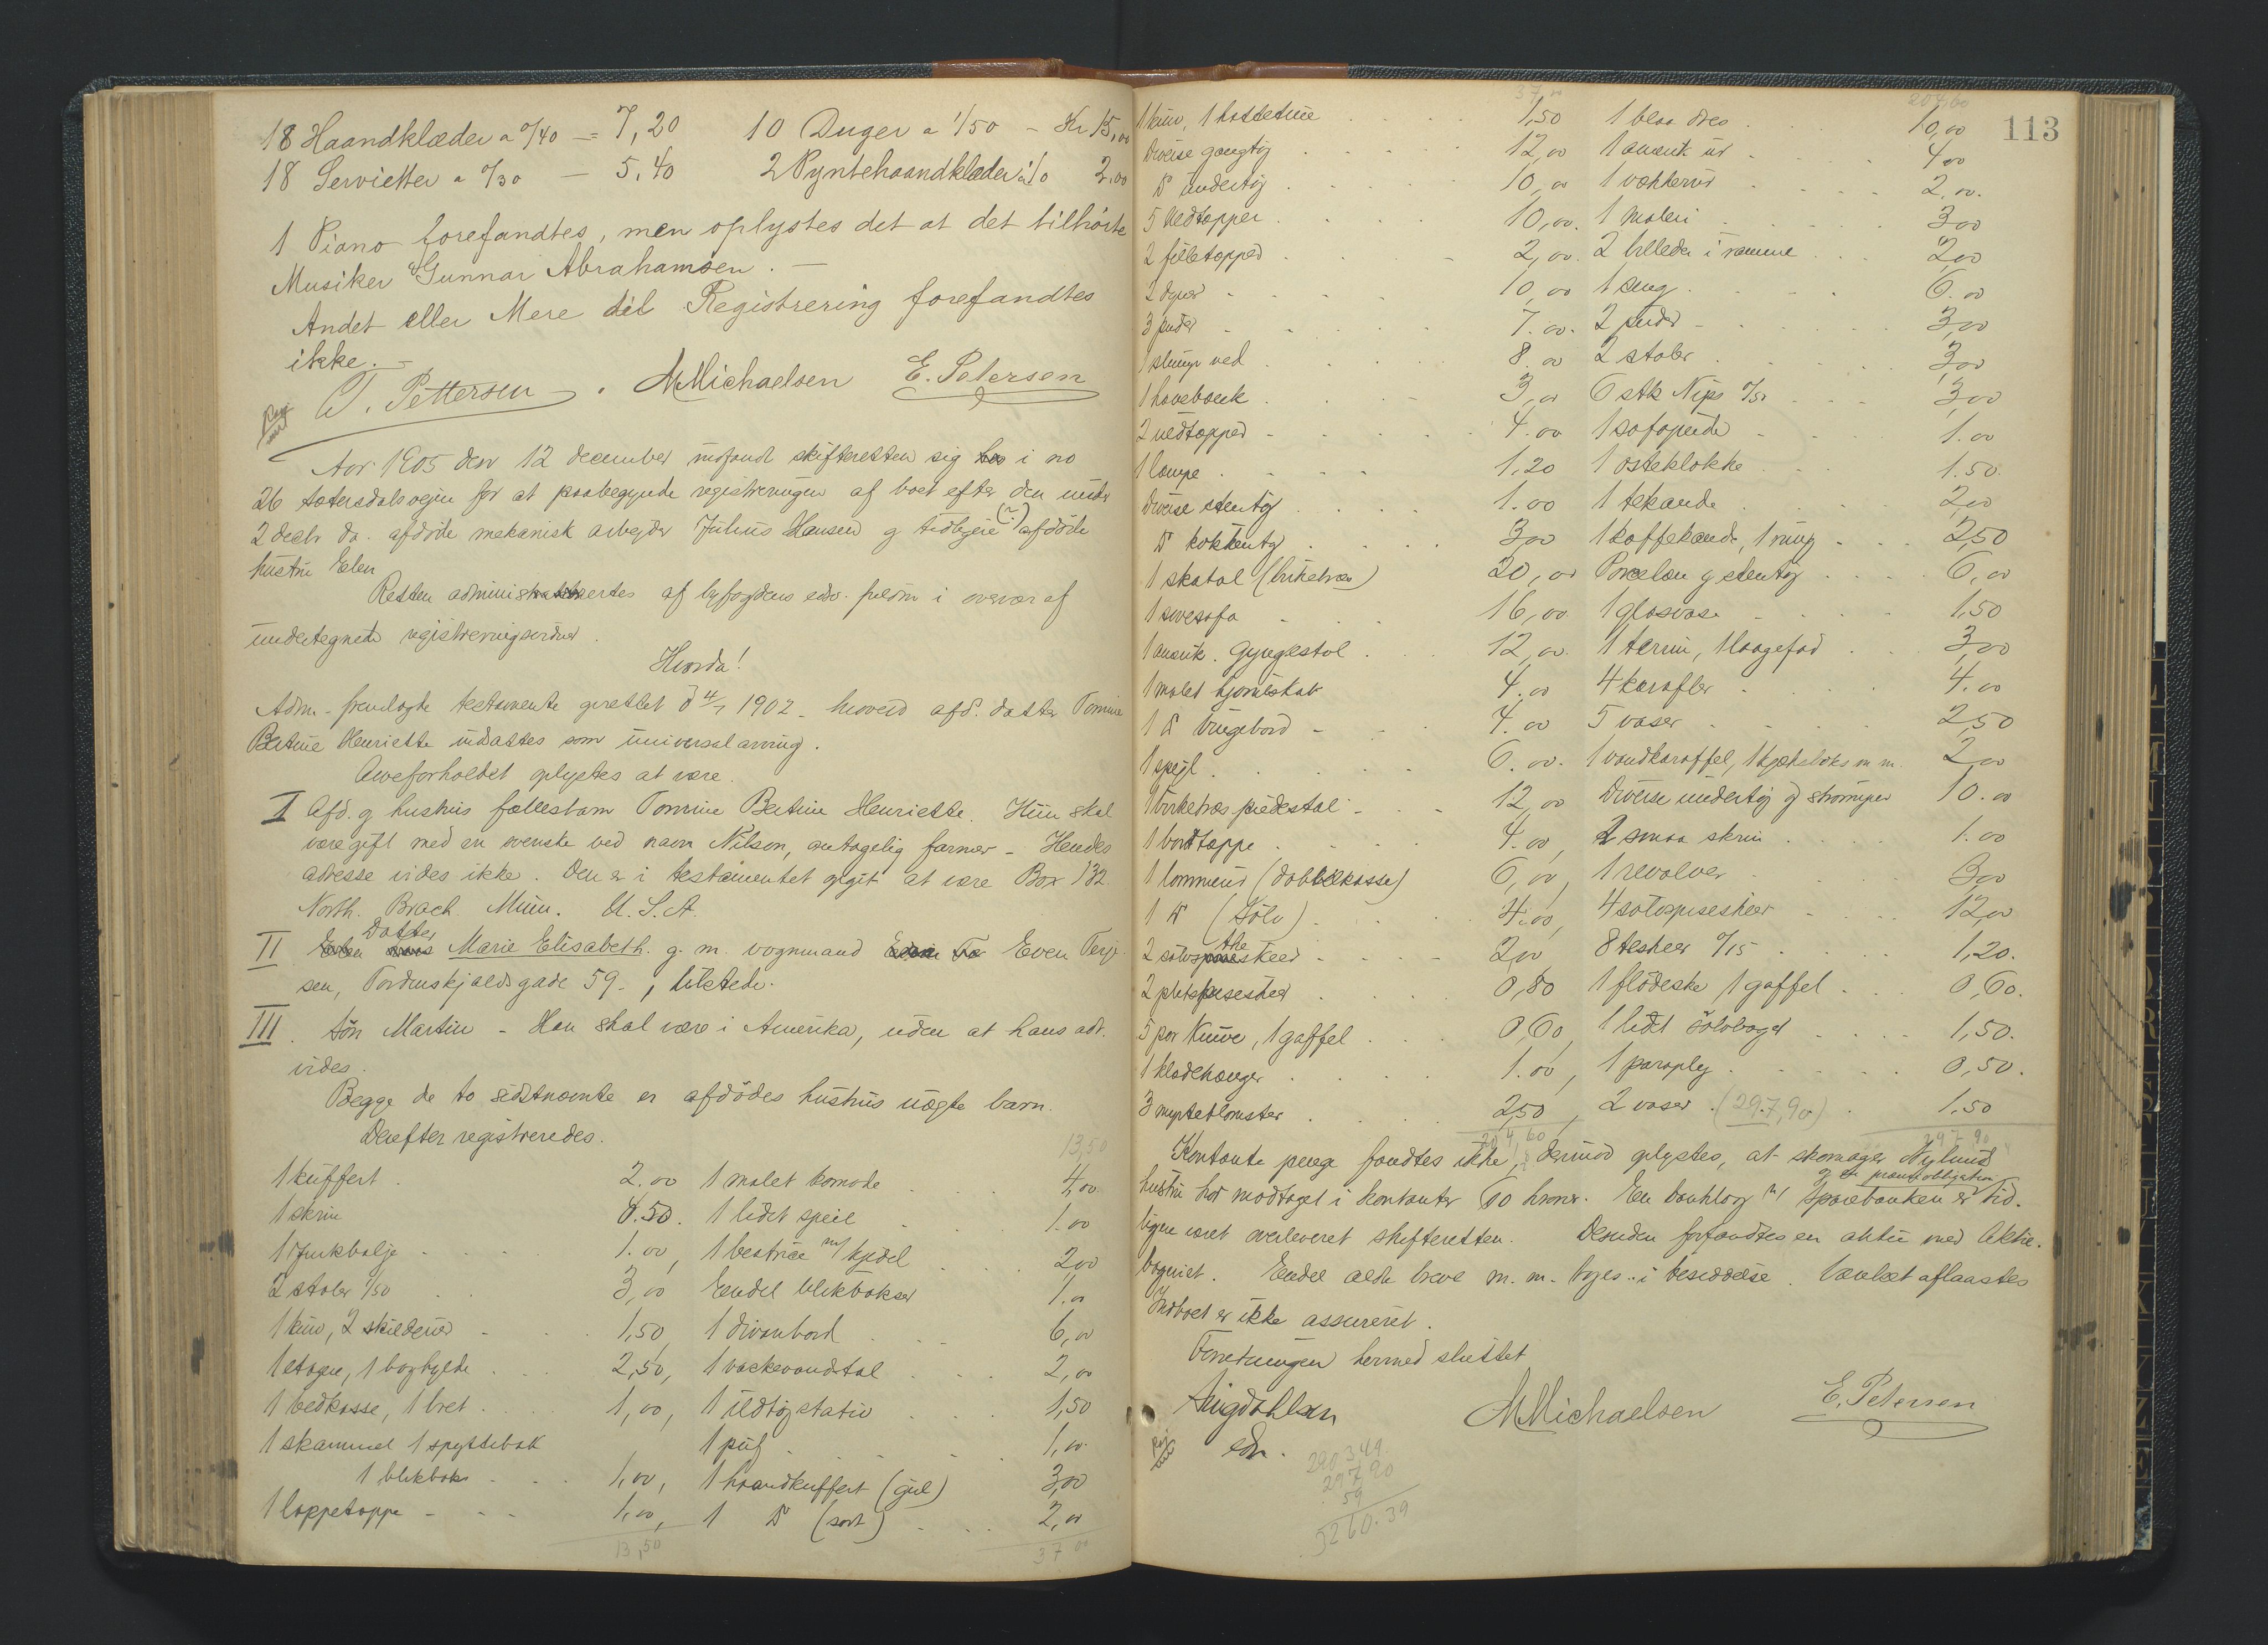 18 Haandklæder a 0/40 = 7,20 10 Duger a 1/50 - Kr 15,00
18 Servietter a 0/30 — 5,40 2 Pyntehaandklæder a 1/0 2,00
1 Piano forefandtes, men oplystes det at det tilhörte
Musiker Gunnar Abrahamsen. —
Andet eller Mere til Registrering forefandtes
ikke. —
T. Pettersen. MMichaelsen E. Petersen
Aar 1905 den 12 december indfandt skifteretten sig i no
26 Sætersdalsveien for at paabegynde registreringen af boet efter den under
2 decbr da. afdöde mekanisk arbeyder Julius Hansen g tidligere afdöde
hustru Elen
Retten administrertes af byfogdens edsv. fuldm i overvær af
undertegnede registreringsvidner.
Hvorda!
Adm. fremlagde testamente oprettet d 4/7 1902 - hvorved afd. datter Tomine
Bertine Henriette indsattes som universalarving.
Arveforholdet oplystes at være.
I Afd. g hustrus fællesbarn Tomine Bertine Henriette. Hun skal
være gift med en svenske ved navn Nilson, antagelig farmer - Hendes
adresse vides ikke. Den er i testamentet opgit at være Box 132
North. Brach. Minn. U.S.A.
II Datter Marie Elisabeth. g. m. vognmand Even Terj-
sen, Tordenskjoldsgade 59 -, tilstede.
III. Sön Martin - Han skal være i Amerika, uden at hans adr.
vides.
Begge de to sidstnævnte er afdödes hustrus uægte barn.
Derefter registreredes.
13,50
1 kuffert 2.00 1 malet komode 4,00
1 skrin 0.50. 1 lidet speil 1.00
1 Jerkbalje 1.00, 1 bestrice m/ kjedel 2,00
2 stoler 1/50 3,00 Endel blikbokser 1.00
1 kurv, 2 skilderier 1,50, 1 divanbord 6,00
1 etagere, 1 boghylde 2,50, 1 vaskevandstol 2,00
1 vedkasse, 1 bret 1,00, 1 ildtöjstativ 1,50
1 skammel 1 spyttebak 1 puf 1,00
1 blikboks 1,00, 1 haandkuffert (gul) 3,00
1 loppetæppe 1,00, 1 D (sort) 2,00
13,50 37 00
113
37,00 204,60
1 kurv, 1 kattetine 1,50 1 blaa dres 10,00
Diverse gangtöj 12,00 1 amerik ur 4,00
D undertöj 10,00 1 vækkerur 2,00.
5 uldtæpper 10,00. 1 maleri 3,00
2 filletæpper 2,00. 2 billeder i ramme 2,00
2 dyner 10,00 1 seng 6.00
3 puder 7.00. 2 puder 3,00
1 slump ved 8.00 2 stoler 3,00
1 havebænk 3,00 6 stk Nips 0/50 3,00
2 uldtæpper 4.00 1 sofapude 1.00
1 lampe 1,20 1 osteklokke 1.50.
Diverse stentöj 1.00 1 tekande 2,00
D kökkentöj 3,00 1 kaffekande, 1 mug 2,50
1 skatol (birketræ) 20,00 Porcelæn g stentöj 6,00
1 sovesofa 16,00 1 glasvase 1,50
1 amerik. Gyngestol 12,00. 1 terrin, 1 laagefad 3,00
1 malet hjörneskab 4.00 4 karafler 4.00
1 D vingebord 4.00 5 vaser 2,50
1 speijl 6.00. 1 vandkaraffel, 1 kjeksboks m m. 2,00
1 birketræs piedestal 12,00 Diverse undertöj og strömper 10.00
1 bordtæppe 4.00, 2 smaa skrin 1.00
1 lommeur (dobbelkasse) 6,00, 1 revolver 3,00
1 D (Sölv) 4.00, 4 sölvspiseskeer 12,00
2 sölvtheskeer 2,00 8 teskeer 0/15 1,20.
2 pletspiseskeer 0,80 1 flödeske 1 gaffel 0,60.
5 par knive, 1 gaffel 0,60, 1 lidet sölvbæger 1,50.
1 klædehænger 1.00, 1 paraply 0,50.
3 myrteblomster 2,50, 2 vaser (297,90) 1,50
204,60 297 90
Kontante penge fandtes ikke, derimod oplystes, at skomager Nylund
g en panteobligation
hustru har modtaget i kontanter 60 kroner. En bankbog m/ sparebanken er tid-
ligere været overleveret skifteretten. Desuden forfandtes en aktie med Aktie-
bryeriet. Endel ældre breve m. m. toges i besiddelse. Værelset aflaastes
Indboet er ikke assureret.
Forretningen hermed sluttet
Aug Dahlsen MMichaelsen E. Petersen
edsv.
2903,49
297,90
59
3260.39